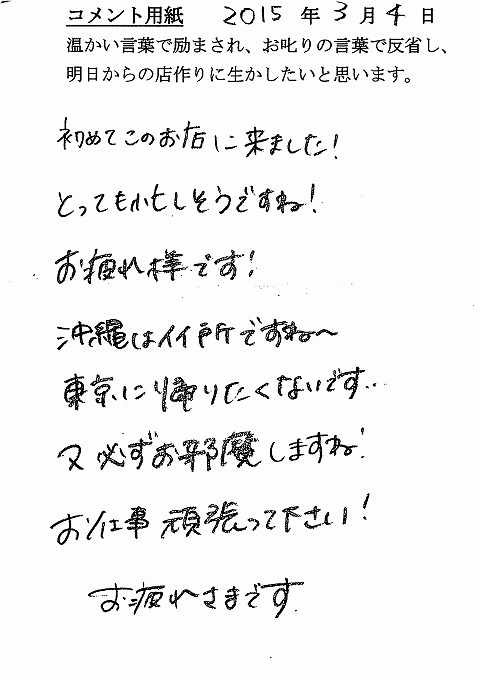 コメント用紙 2015 年 3 月 4 日
温かい言葉で励まされ、お叱りの言葉で反省し、
明日からの店作りに生かしたいと思います。
初めてこのお店に来ました!
とっても忙しそうですね!
お疲れ様です!
沖縄はイイ所ですね〜
東京に帰りたくないです..
又必ずお邪魔しますね!
お仕事頑張って下さい!
お疲れさまです